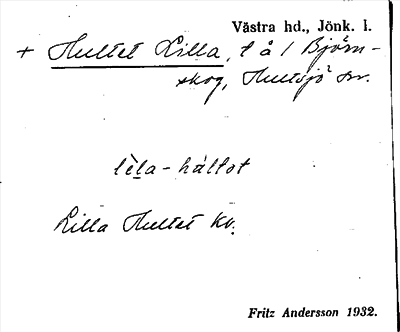 Västra hd., Jönk. l.
+ Hultet Lilla, t å / Björn-
skog, Hultsjö sn.
lèla - hállot
Lilla Hultet kv.
Fritz Andersson 1932.